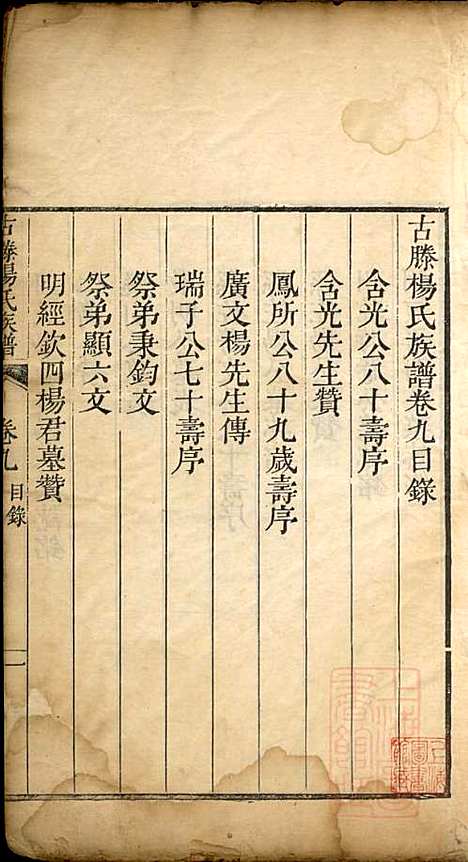 古滕楊氏族譜卷九目錄
含光公八十壽序
含光先生贊
鳳所公八十九歲壽序
廣文楊先生傳
瑞子公七十壽序
祭弟秉鈞文
祭弟顯六文
明經欽四楊君墓贊
古滕楊氏族譜 卷九 目錄 一